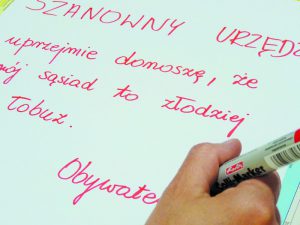 SZANOWNY URZĘDZ
uprzejmie donoszę, że
mój sąsiad to złodziej
łobuz.
Obywate